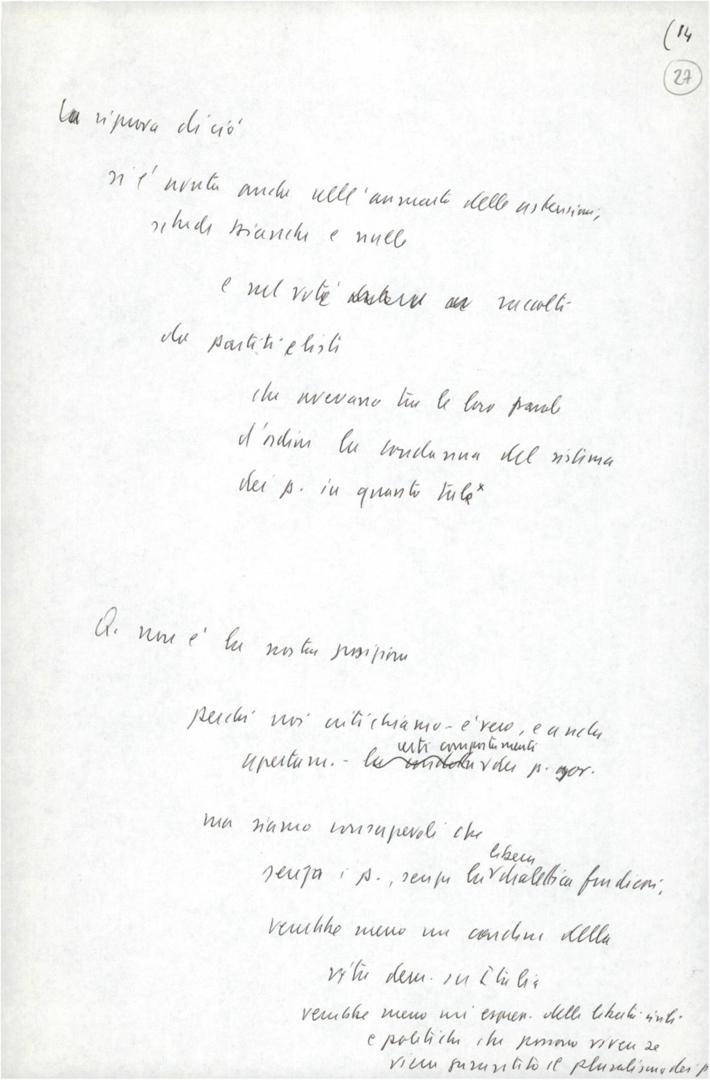 (14
27
La riprova di ciò
si è avuta anche nell'aumento delle astensioni,
schede bianche e nulle
e nel voti raccolti
da partiti e listi
che avevano tra le loro parole
d'ordine la condanna del sistema
dei p. in quanto tale*
Q. non è la nostra posizione
perché noi critichiamo - è vero, e anche
certi comportamenti
apertam. - la condotta dei p. gov.
ma siamo consapevoli che
libera
senza i p., senza la dialettica fra di essi,
verrebbe meno un cardine della
vita dem. in Italia
verrebbe meno un' espres. delle libertà civili
e politiche che possono vivere se
viene garantito il pluralismo dei p